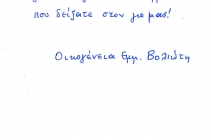 που δείξατε στον γιο μας!
Οικογένεια Εμμ. Βολιώτη